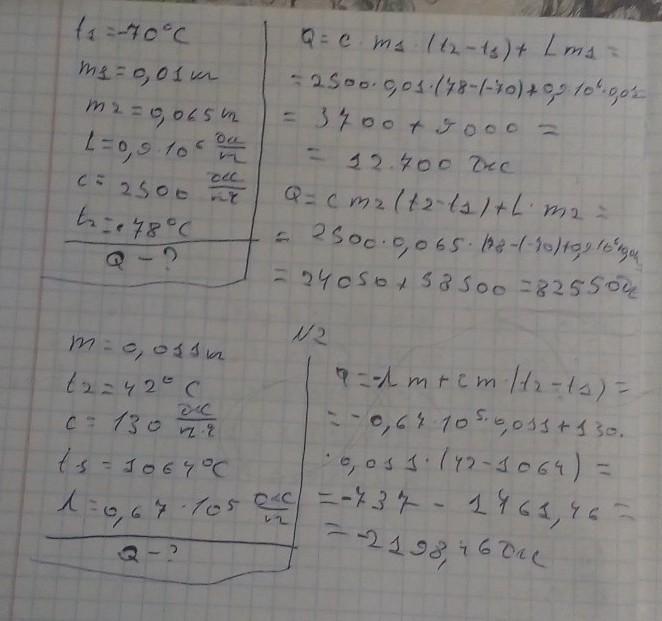 t₁=-70°C
m₁=0,01 кг
m₂=0,065 кг
L=0,9·10⁶ Дж/кг
c=2500 Дж/кг·°C
t₂=+78°C
Q-?
Q=c·m₁·(t₂-t₁)+Lm₁=
=2500·0,01·(78-(-70)+0,9·10⁶·0,01
=3700+9000=
=12.700 Дж
Q=cm₂(t₂-t₁)+L·m₂=
=2500·0,065·(78-(-70)+0,9·10⁶·0,06
=24050+58500=82550Дж
N2
m=0,011кг
t₂=42°C
c=130 Дж/кг·°C
t₁=1064°C
λ=0,67·10⁵ Дж/кг
Q-?
Q=-λm+cm·(t₂-t₁)=
=-0,67·10⁵·0,011+130·
·0,011·(42-1064)=
=-737-1461,46=
=-2198,46 Дж